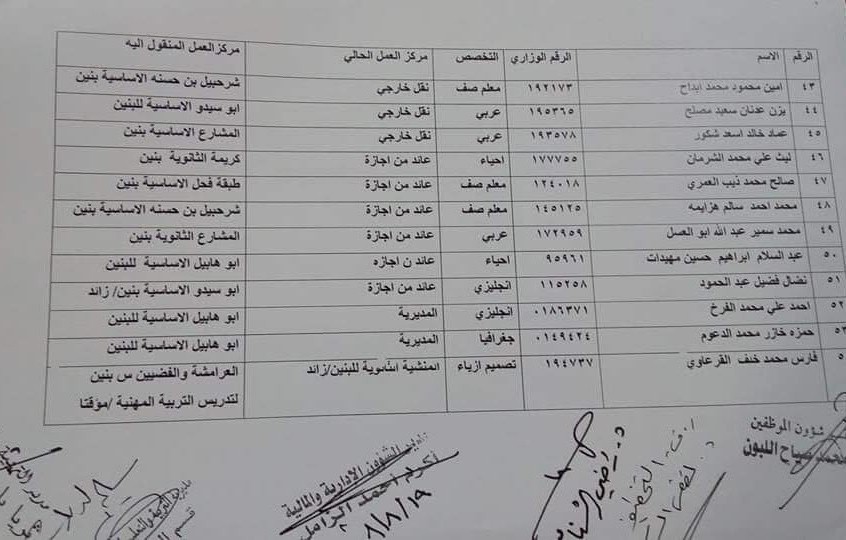 الرقم الاسم الرقم الوزاري التخصص مركز العمل الحالي مركز العمل المنقول اليه
٤٣ امين محمود محمد ابداح ١٩٢١٧٣ معلم صف نقل خارجي شرحبيل بن حسنه الاساسية بنين
٤٤ يزن عدنان سعيد مصلح ١٩٥٣٦٥ عربي نقل خارجي ابو سيدو الاساسية للبنين
٤٥ عماد خالد اسعد شكور ١٩٣٥٧٨ عربي نقل خارجي المشارع الاساسية بنين
٤٦ ليث علي محمد الشرمان ١٧٧٧٥٥ احياء عائد من اجازة كريمة الثانوية بنين
٤٧ صالح محمد ذيب العمري ١٢٤٠١٨ معلم صف عائد من اجازة طبقة فحل الاساسية بنين
٤٨ محمد احمد سالم هزايمه ١٤٥١٢٥ معلم صف عائد من اجازة شرحبيل بن حسنه الاساسية بنين
٤٩ محمد سمير عبد الله ابو العسل ١٧٢٩٥٩ عربي عائد من اجازة المشارع الثانوية بنين
٥٠ عبد السلام ابراهيم حسين مهيدات ٩٥٩٦١ احياء عائد ن اجازه ابو هابيل الاساسية للبنين
٥١ نضال فضيل عبد الحمود ١١٥٢٥٨ انجليزي عائد من اجازة ابو سيدو الاساسية بنين/ زائد
٥٢ احمد علي محمد الفرخ ٠١٨٦٣٧١ انجليزي المديرية ابو هابيل الاساسية للبنين
٥٣ حمزه خازر محمد الدعوم ٠١٤٩٤٢٤ جغرافيا المديرية ابو هابيل الاساسية للبنين
٥ فارس محمد خلف القرعاوي ١٩٤٧٣٧ تصميم ازياء المنشية الثانوية للبنين/زائد العرامشة والفضيين س بنين
لتدريس التربية المهنية /مؤقتا
شؤون الموظفين
محمد صياح اللبون
مدير الشؤون الادارية والمالية
اكرم احمد الزامل
٨/٨/١٩